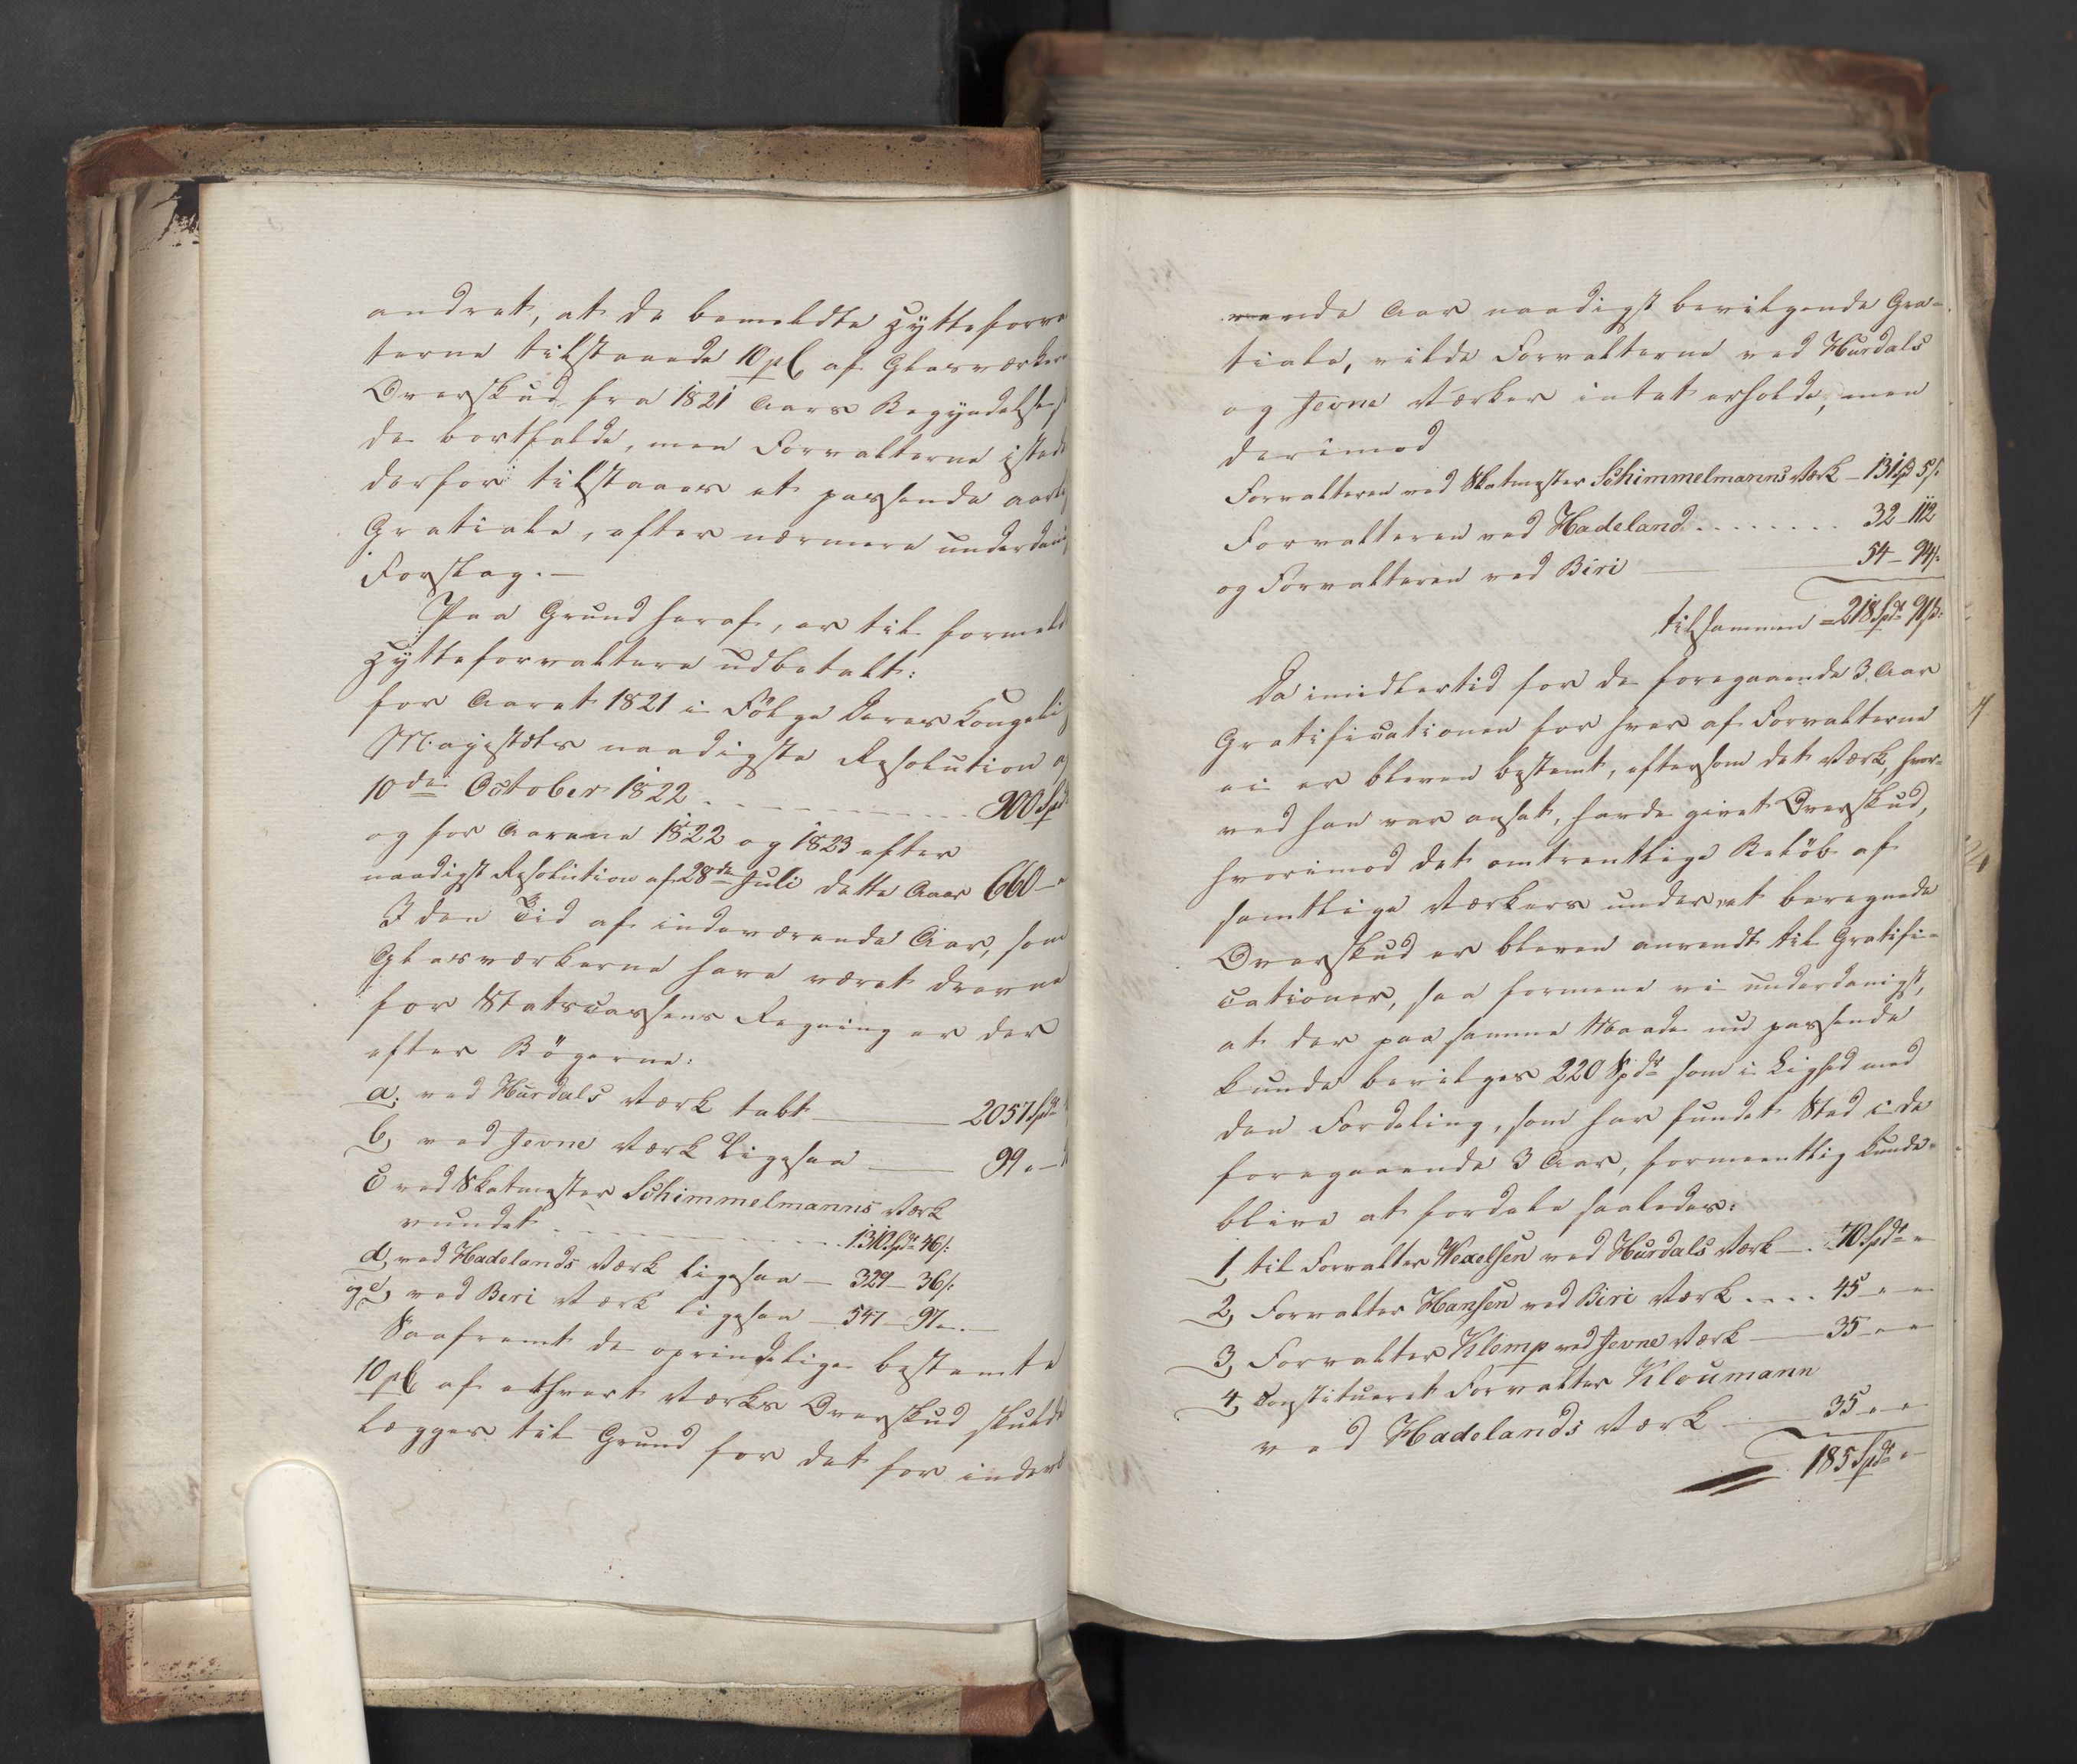 andret, at de bemeldte Hytteforva
terne tilstaaede 10 pC af Glasværkern
Overskud fra 1821 Aars Begyndelse
de bortfalde, men Forvalterne isted
derfor tilstaaes et passende aarli
Gratiale, efter nærmere underdani
Forslag.—
Paa Grund heraf, er til formeld
Hytteforvaltere udbetalt:
for Aaret 1821 i Følge Deres Kongeli
Majestæts naadigste Resolution af
10de October 1822 . . . 900 Spd
og for Aarene 1822 og 1823 efter
naadigst Resolution af 28de Juli dette Aar 660 —
I den Tid af indeværende Aar, som
Glasværkerne have været drevne
for Statscassens Regning er der
efter Bøgerne:
a, ved Hurdals Værk tabt — 2057 Spdr
b, ved Jevne Værk ligesaa — 99 " —
c ved Skatmester Schimmelmanns Værk
vundet . . . 1310 Spdr 46 s:
d, ved Hadelands Værk ligesaa — 329 — 36 s:
og e, ved Beri Værk ligesaa — 547 — 97 " —
Saafremt de oprindelige bestemte
10 pC af ethvert Værks Overskud skulde
lægges til Grund for det for indevæ
rende Aar naadigst bevilgende Gra-
tiale, vilde Forvalterne ved Hurdals
og Jevne Værker intet erholde, men
derimod
Forvalteren ved Skatmester Schimmelmanns Værk — 131 Spd 5 s:
Forvalteren ved Hadeland . . . 32 — 112
og Forvalteren ved Biri — 54 — 94 s:
tilsammen = 218 Spdr 91 s:
Da imidlertid for de foregaaende 3 Aar
Gratificationen for hver af Forvalterne
ei er bleven bestemt, eftersom det Værk, hvor-
ved han var ansat, havde givet Overskud,
hvorimod det omtrentlige Beløb af
samtlige Værkers under et beregnede
Overskud er bleven anvendt til Gratifi-
cationer, saa formene vi underdanigst,
at der paa samme Maade nu passende
kunde bevilges 220 Spdr som i Lighed med
den Fordeling, som har fundet Sted i de
foregaaende 3 Aar, formeentlig kunde
blive at fordele saaledes:
1, til Forvalter Wexelsen ved Hurdals Værk — 70 Spdr "
2, Forvalter Hansen ved Biri Værk . . . . 45 " "
3, Forvalter Klomp ved Jevne Værk — 35 " "
4, Constitueret Forvalter Kloumann
ved Hadelands Værk — 35 " "
185 Spdr "